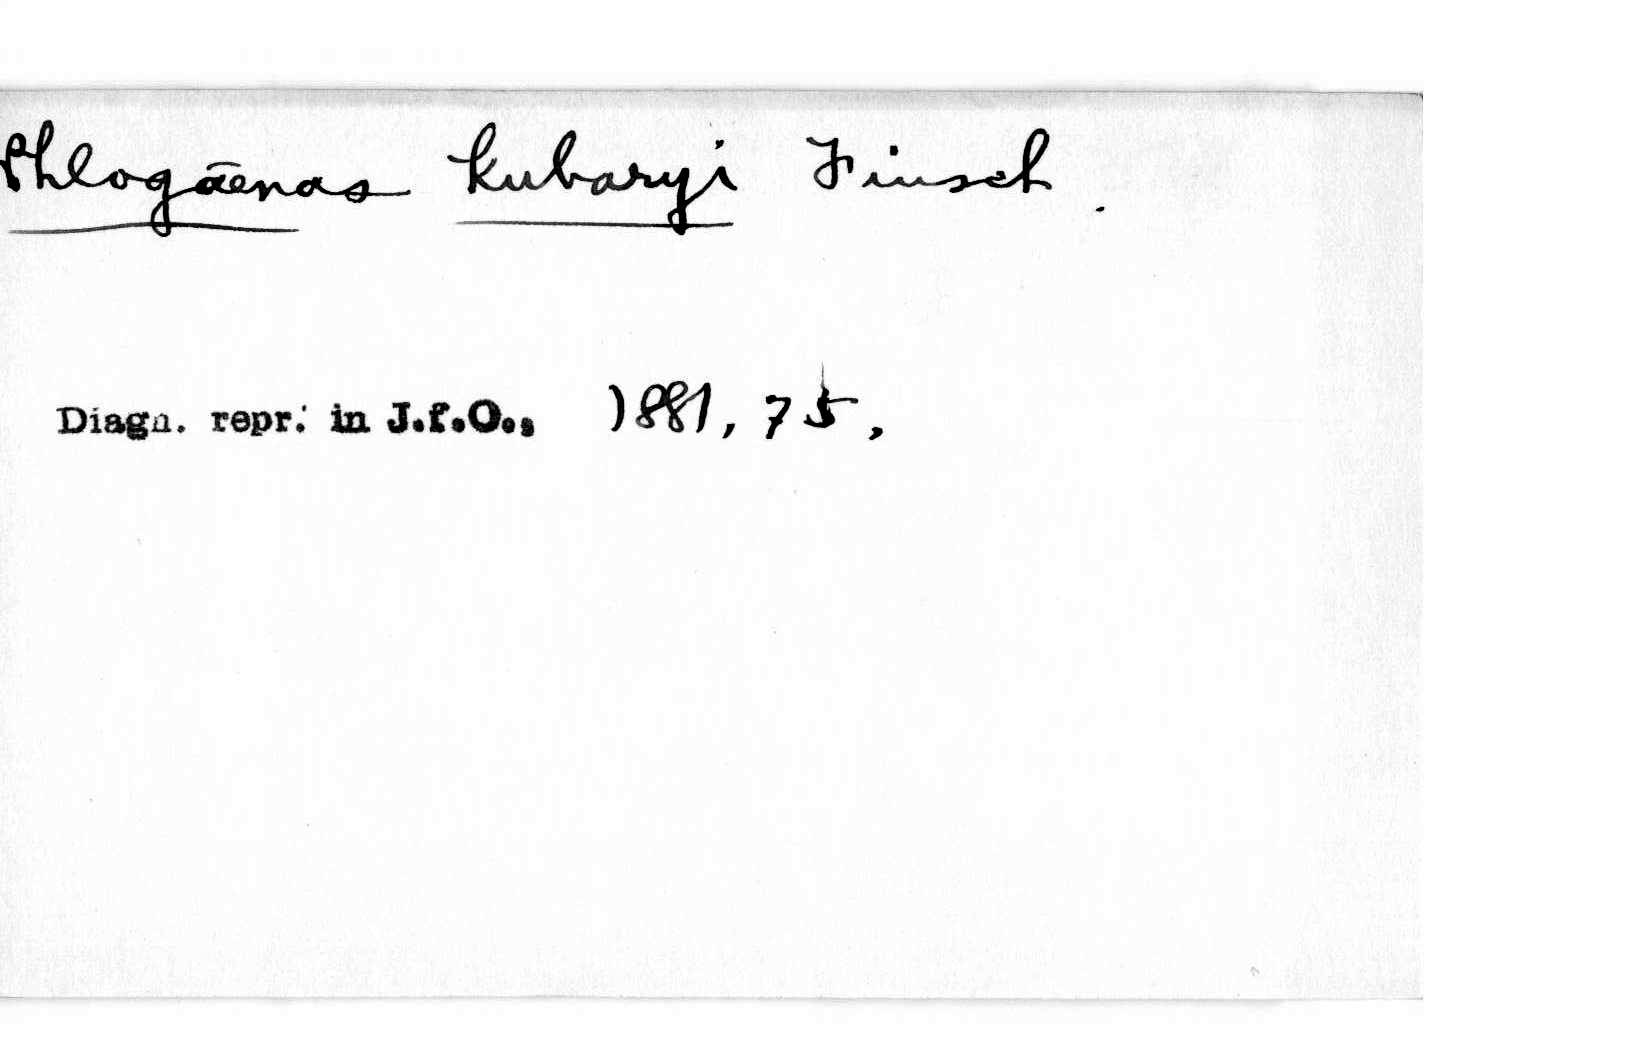 Phlogāenas kubaryi Finsch.
Diagn. repr. in J.f.O., 1881, 75,